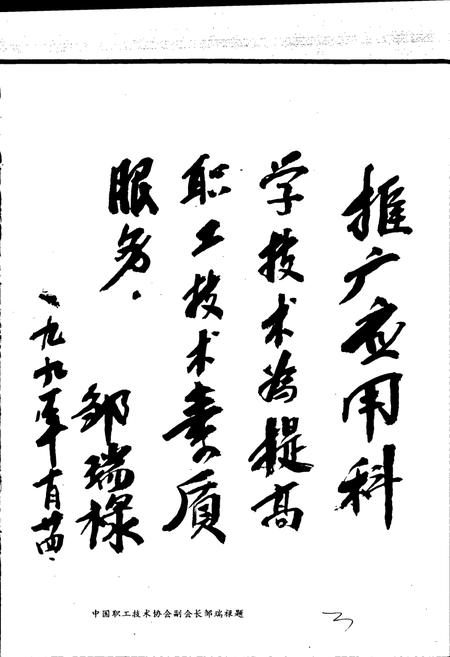 推广应用科
学技术为提高
职工技术素质
服务．
邹瑞禄
一九九一年十一月廿四．
中国职工技术协会副会长邹瑞禄题
3